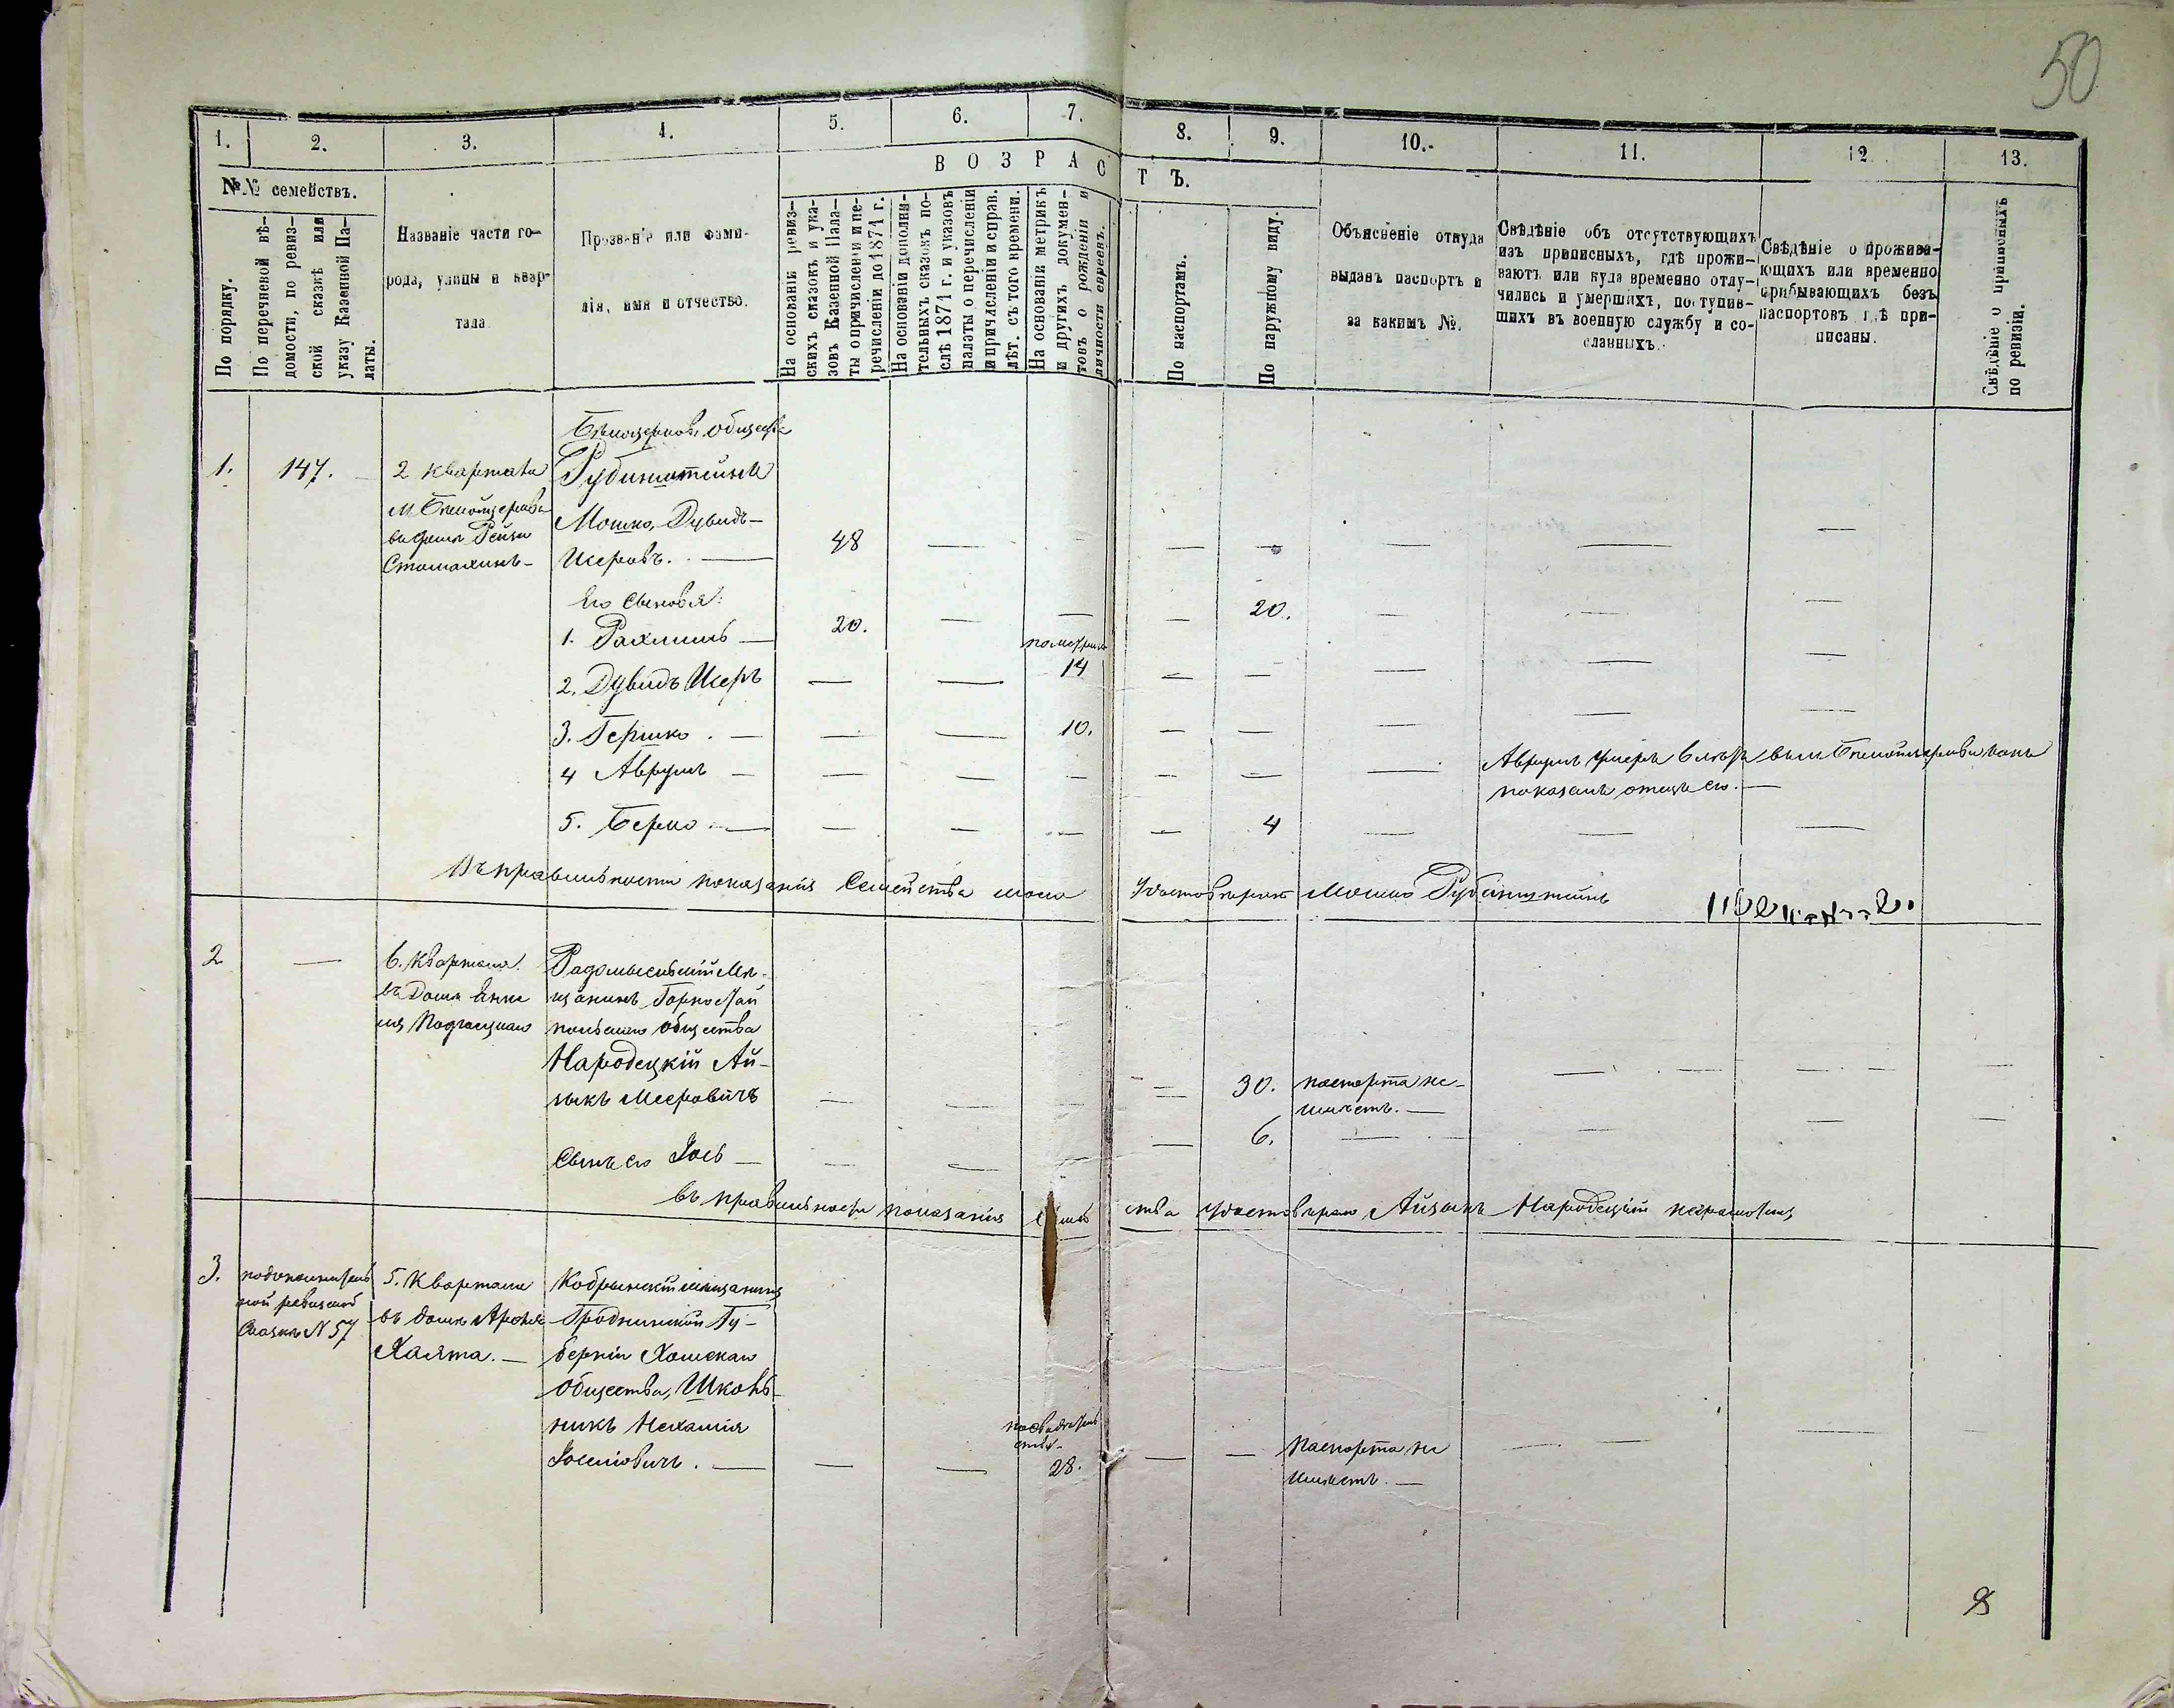 50
1.
2.
3.
4.
5.
6.
7.
8.
9.
10.
11.
12
13.
ВОЗРАСТЪ.
№№ семействъ.
По порядку.
По перечневой вѣ-
домости, по ревиз-
ской сказкѣ или
указу Казенной Па-
латы.
Названіе части го-
рода, улицы и квар-
тала.
Прозваніе или фами-
лія, имя и отчество.
На основаніи ревиз-
скихъ сказокъ и ука-
зовъ Казенной Пала-
ты о причисленіи и пе-
речисленіи до 1874 г.
На основаніи дополни-
тельныхъ сказокъ по-
слѣ 1874 г. и указовъ
палаты о перечисленіи
и причисленіи и справ.
лѣт. съ того времени.
На основаніи метрикъ
и другихъ докумен-
товъ о рожденіи и
личности евреевъ.
По паспортамъ.
По наружному виду.
Объясненіе откуда
выданъ паспортъ и
за какимъ №.
Свѣдѣніе объ отсутствующихъ
изъ приписныхъ, гдѣ прожи-
ваютъ или куда временно отлу-
чились и умершихъ, поступив-
шихъ въ военную службу и со-
сланныхъ.
Свѣдѣніе о прожива-
ющихъ или временно
прибывающихъ безъ
паспортовъ гдѣ при-
писаны.
Свѣдѣніе о приписныхъ
по ревизіи.
Бѣлоцерков. общества
1. 147. 2 квартала Рубинштейнъ
м. Бѣлойцеркви
въ домѣ Рейзи
Мошко, Дувидъ-
Шеровъ. — 48 — — — — — —
Его сыновья:
1. Рахмиль — 20. — — — 20. — — —
по метрикѣ
2. Дувидъ Шеръ — — 14 — — — — —
3. Гершко. — — — 10. — — — — —
4 Аврумъ — — — — — — — Аврумъ умеръ въ м. Бѣлойцеркви
показалъ отецъ его. —
5. Берко. — — — — — 4 — — —
Въ правильности показанія семейства моего удостовѣряю Мошко Рубинштейнъ
2 — 6. Квартала Радомысльскій мѣ-
въ домѣ щанинъ Горностай
польскаго общества
Народецкій Ай-
зыкъ Мееровичъ — — — — 30. паспорта не
имѣетъ. —
Сынъ его Іось — — — — 6. — — — —
въ правильности показанія семейства удостовѣряю Айзыкъ Народецкій
3. 5. Квартала Кобрынскій мѣщанинъ
ной ревизской въ домѣ Арона Гродненской Гу-
Сказкѣ N 57 Халята. — берніи Хомскаго
общества, Школь-
никъ Нехамія
Іосіовичъ. — — — 28. — — Паспорта не — — —
имѣетъ. —